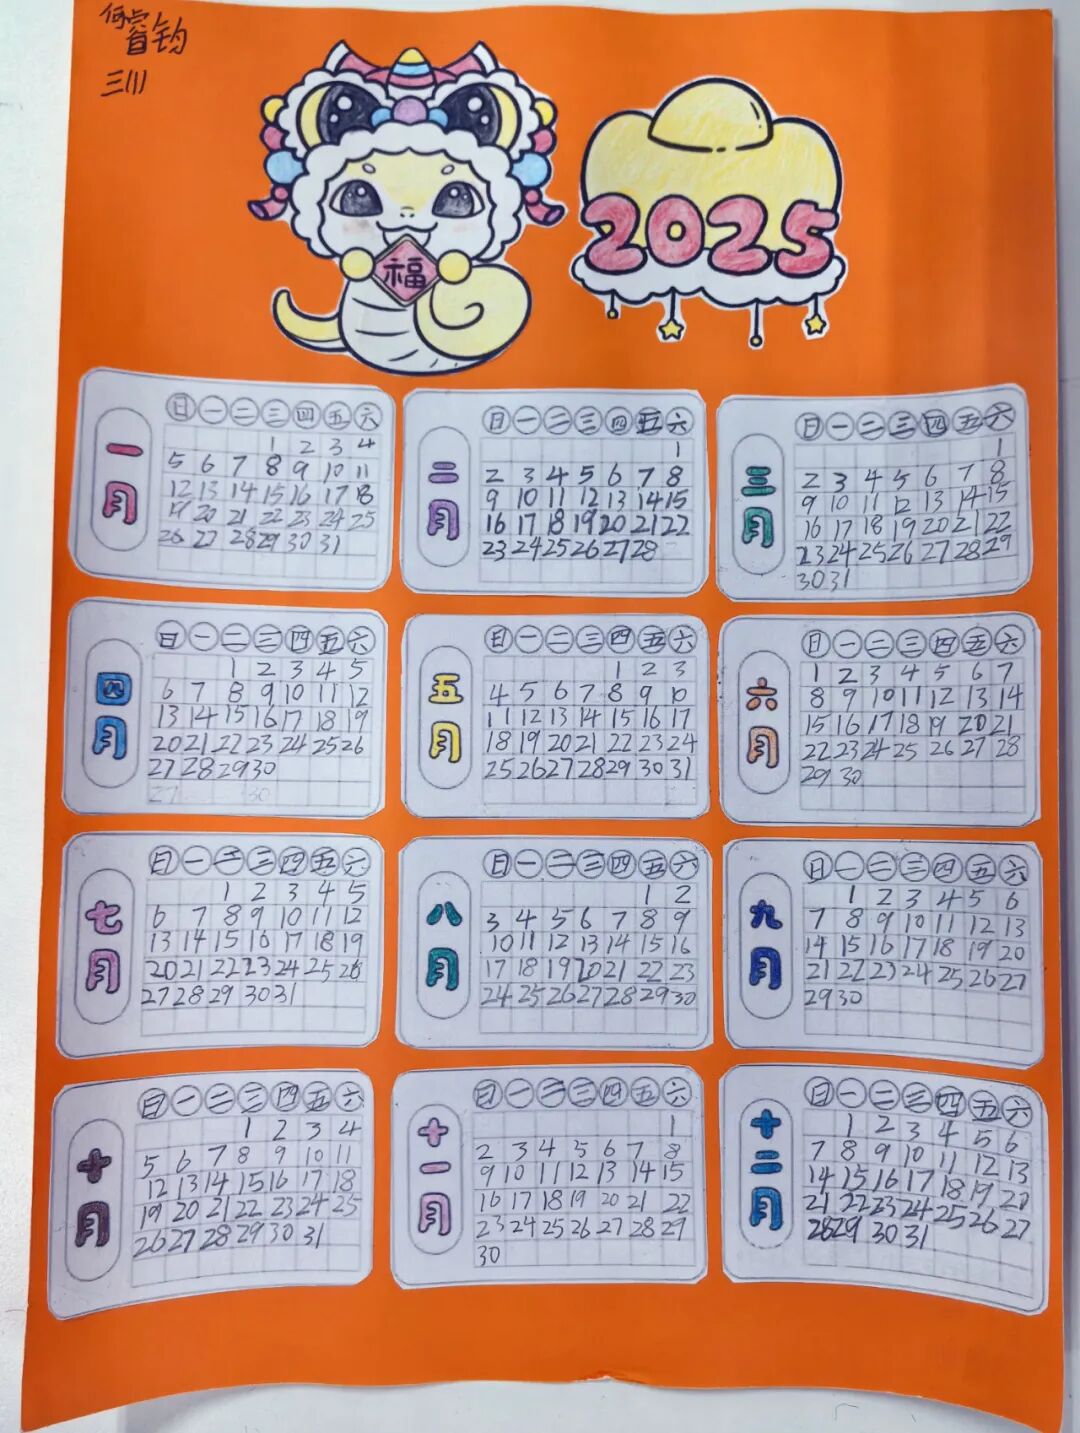 何睿钧
三(1)
福
2025
一月
日 一 二 三 四 五 六
1 2 3 4
5 6 7 8 9 10 11
12 13 14 15 16 17 18
19 20 21 22 23 24 25
26 27 28 29 30 31
二月
日 一 二 三 四 五 六
1
2 3 4 5 6 7 8
9 10 11 12 13 14 15
16 17 18 19 20 21 22
23 24 25 26 27 28
三月
日 一 二 三 四 五 六
1
2 3 4 5 6 7 8
9 10 11 12 13 14 15
16 17 18 19 20 21 22
23 24 25 26 27 28 29
30 31
四月
日 一 二 三 四 五 六
1 2 3 4 5
6 7 8 9 10 11 12
13 14 15 16 17 18 19
20 21 22 23 24 25 26
27 28 29 30
27 30
五月
日 一 二 三 四 五 六
1 2 3
4 5 6 7 8 9 10
11 12 13 14 15 16 17
18 19 20 21 22 23 24
25 26 27 28 29 30 31
六月
日 一 二 三 四 五 六
1 2 3 4 5 6 7
8 9 10 11 12 13 14
15 16 17 18 19 20 21
22 23 24 25 26 27 28
29 30
七月
日 一 二 三 四 五 六
1 2 3 4 5
6 7 8 9 10 11 12
13 14 15 16 17 18 19
20 21 22 23 24 25 26
27 28 29 30 31
八月
日 一 二 三 四 五 六
1 2
3 4 5 6 7 8 9
10 11 12 13 14 15 16
17 18 19 20 21 22 23
24 25 26 27 28 29 30
九月
日 一 二 三 四 五 六
1 2 3 4 5 6
7 8 9 10 11 12 13
14 15 16 17 18 19 20
21 22 23 24 25 26 27
29 30
十月
日 一 二 三 四 五 六
1 2 3 4
5 6 7 8 9 10 11
12 13 14 15 16 17 18
19 20 21 22 23 24 25
26 27 28 29 30 31
十一月
日 一 二 三 四 五 六
1
2 3 4 5 6 7 8
9 10 11 12 13 14 15
16 17 18 19 20 21 22
23 24 25 26 27 28 29
30
十二月
日 一 二 三 四 五 六
1 2 3 4 5 6
7 8 9 10 11 12 13
14 15 16 17 18 19 20
21 22 23 24 25 26 27
28 29 30 31